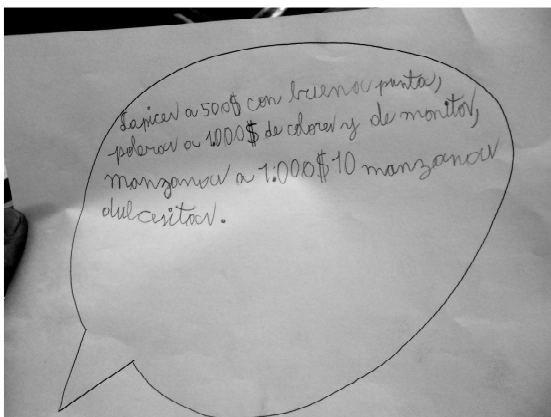 Lapices a 500$ con buena punta,
poleras a 1000$ de colores y de monitos,
manzanas a 1.000$ 10 manzanas
dulcesitas.